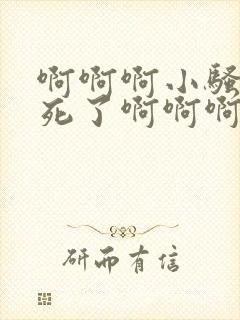 啊啊啊小骚
死了啊啊啊
研而有信